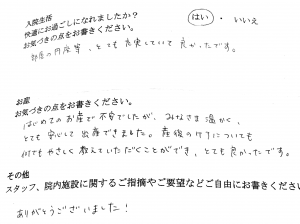 入院生活
快適にお過ごしになれましたか？ はい ・ いいえ
お気づきの点をお書きください。
部屋の内装等、とても充実していて良かったです。
お産
お気づきの点をお書きください。
はじめてのお産で不安でしたが、みなさま温かく、
とても安心して出産できました。産後のケアについても
何でもやさしく教えていただくことができ、とても良かったです。
その他
スタッフ、院内施設に関するご指摘やご要望などご自由にお書きください
ありがとうございました！